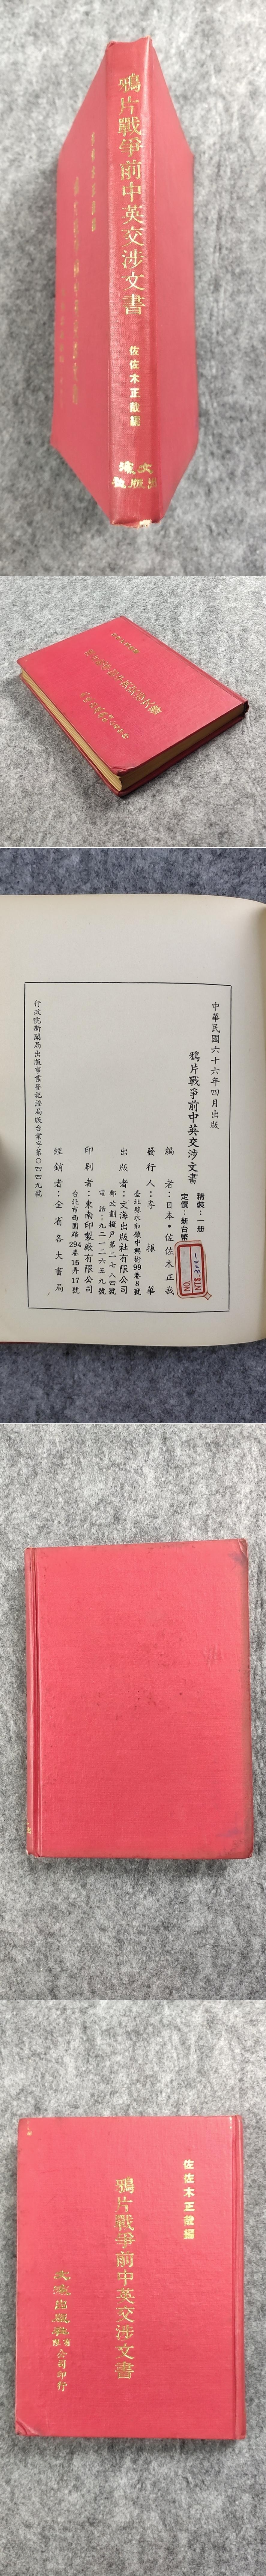 鴉片戰爭前中英交涉文書
佐佐木正哉編
文海
出版社
中華民國六十六年四月出版
鴉片戰爭前中英交涉文書
精裝：一册
定價：新台幣
NO.
NT$
編者：日本・佐佐木正哉
發行人：李振華
臺北縣永和鎮中興街99巷8號
出版者：文海出版社有限公司
電話：九二一二六五九號
印刷者：東南印製廠有限公司
台北市西園路294巷15弄17號
經銷者：全省各大書局
行政院新聞局出版事業登記證局版台業字第〇四四九號
佐佐木正哉編
鴉片戰爭前中英交涉文書
文海出版社有限公司印行